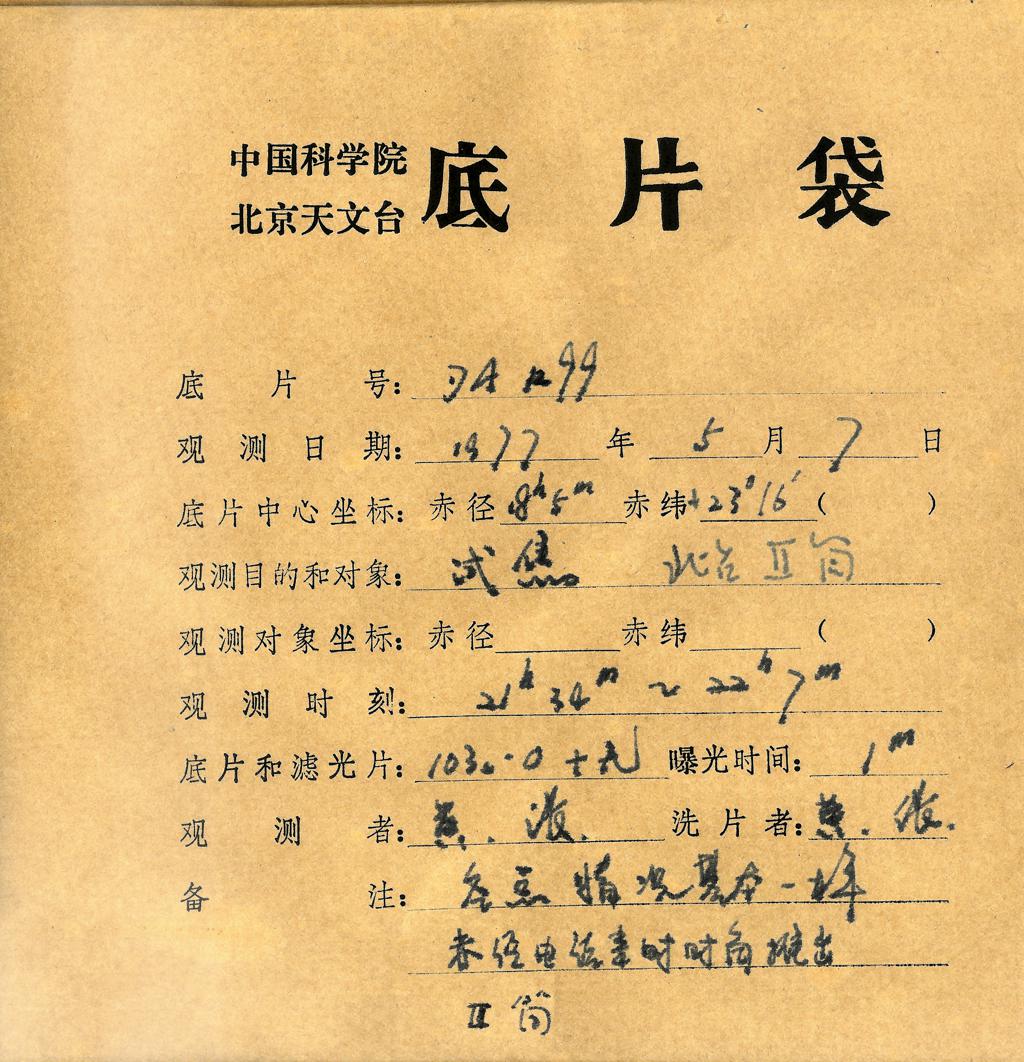 中国科学院
北京天文台
底片袋
底片号:
观测日期: 1977 年 5 月 7 日
底片中心坐标: 赤径 8h5m 赤纬 +23°16′ ( )
观测目的和对象: 试焦 北台 II筒
观测对象坐标: 赤径 赤纬 ( )
观测时刻: 21h 34m ~ 22h 7m
底片和滤光片: 103a-O + 无 曝光时间: 1m
观测者: 黄. 洗片者: 黄.
备注: 各点情况基本一样
赤经由 时角推出
II 筒